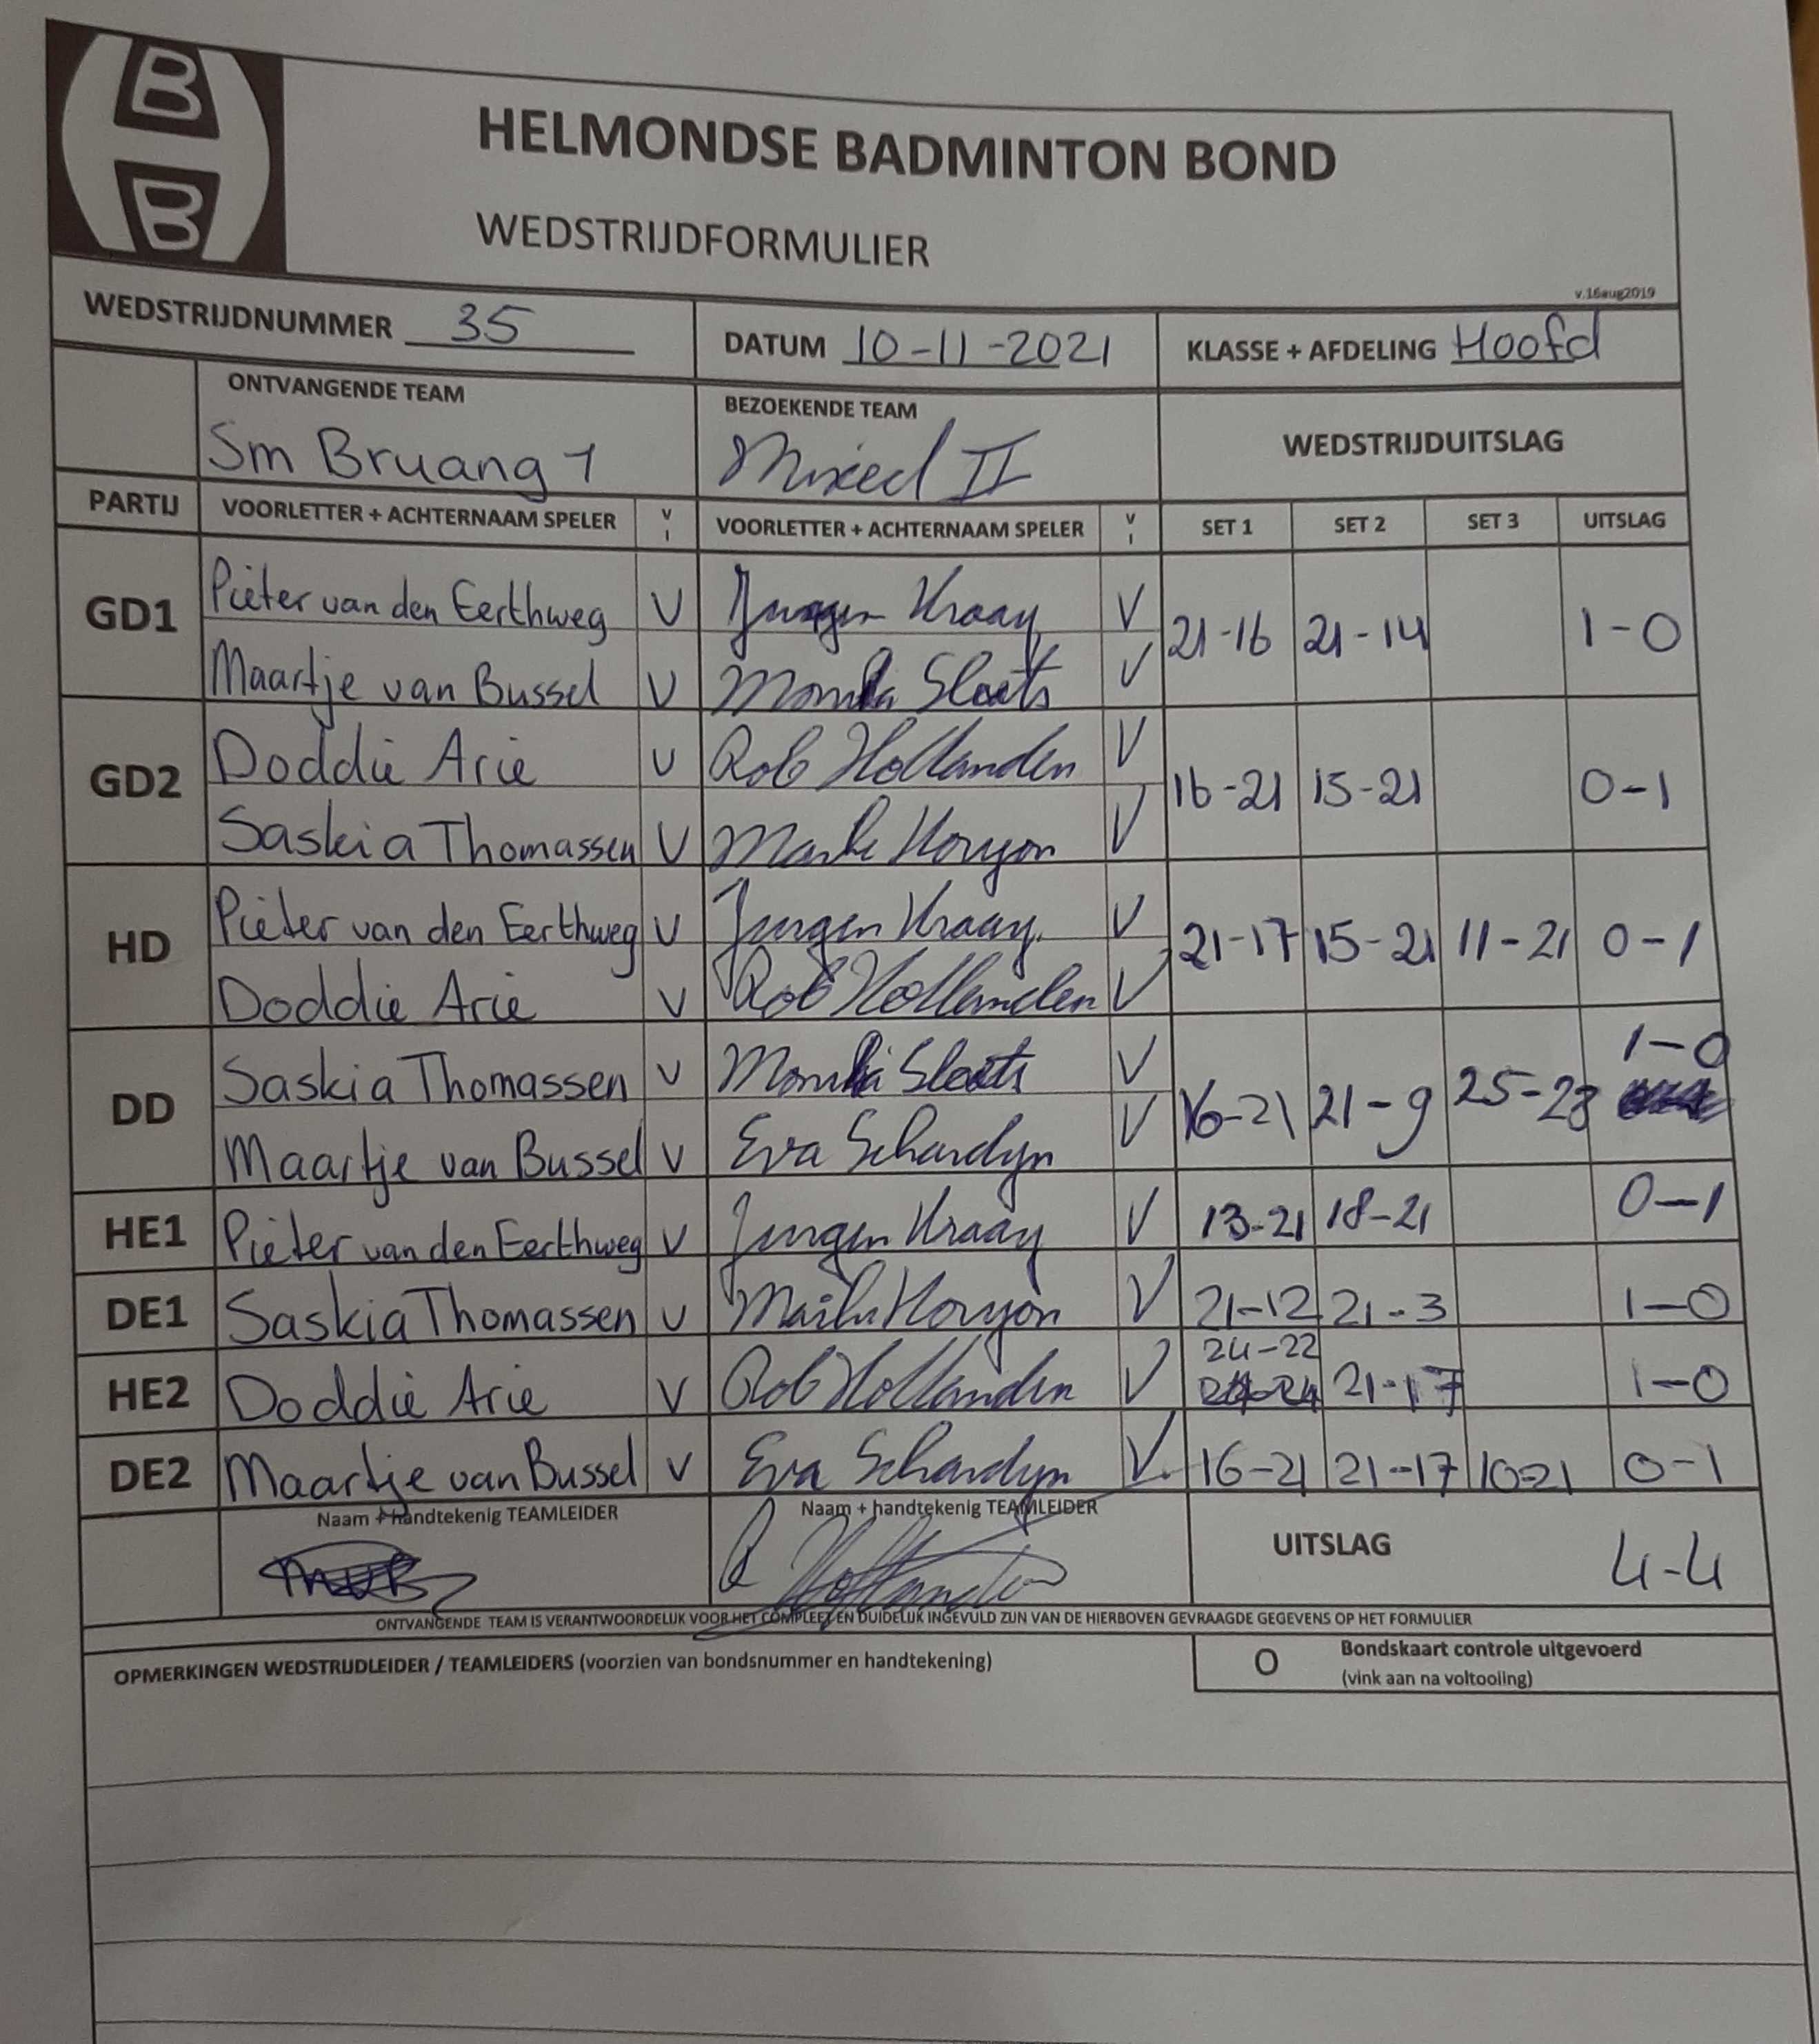 B
B
HELMONDSE BADMINTON BOND
WEDSTRIJDFORMULIER
v.16aug2019
WEDSTRIJDNUMMER 35 DATUM 10-11-2021 KLASSE + AFDELING Hoofd
ONTVANGENDE TEAM BEZOEKENDE TEAM
Sm Bruang 1 Mixed II WEDSTRIJDUITSLAG
PARTIJ VOORLETTER + ACHTERNAAM SPELER V I VOORLETTER + ACHTERNAAM SPELER V I SET 1 SET 2 SET 3 UITSLAG
GD1 Pieter van den Eerthweg V Jurgen Kraay V 21-16 21-14 1-0
Maartje van Bussel V Slaats V
GD2 Doddie Arie V Rob Hollanden V 16-21 15-21 0-1
Saskia Thomassen V V
HD Pieter van den Eerthweg V Jurgen Kraay V 21-17 15-21 11-21 0-1
Doddie Arie V Rob Hollanden V
DD Saskia Thomassen V Slaats V 16-21 21-9 25-23 1-0
Maartje van Bussel V Eva Schardyn V
HE1 Pieter van den Eerthweg V Jurgen Kraay V 13-21 18-21 0-1
DE1 Saskia Thomassen V V 21-12 21-3 1-0
HE2 Doddie Arie V Rob Hollanden V 24-22 21-17 1-0
DE2 Maartje van Bussel V Eva Schardyn V 16-21 21-17 10-21 0-1
Naam + handtekenig TEAMLEIDER Naam + handtekenig TEAMLEIDER
UITSLAG 4-4
ONTVANGENDE TEAM IS VERANTWOORDELIJK VOOR HET COMPLEET EN DUIDELIJK INGEVULD ZIJN VAN DE HIERBOVEN GEVRAAGDE GEGEVENS OP HET FORMULIER
OPMERKINGEN WEDSTRIJDLEIDER / TEAMLEIDERS (voorzien van bondsnummer en handtekening) O Bondskaart controle uitgevoerd
(vink aan na voltooiing)